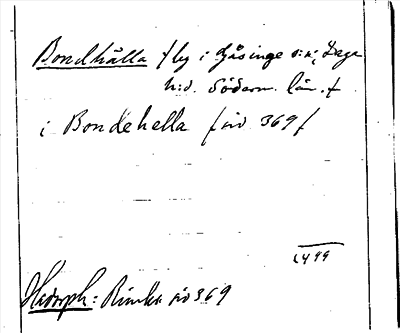 Bondhälla f by i Gåsinge s:n, Daga
h:d. Söderm. län. f
i Bondehella f sid 369 f
1499
Hadorph: Rimkr sid 369